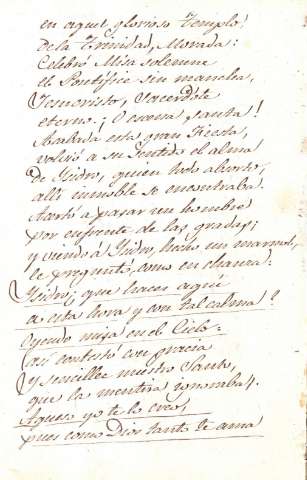 en aquel glorioso Templo
de la Trinidad, Morada:
Celebró Misa solemne
el Pontífice sin mancha,
Jesucristo, Sacerdote
eterno. ¡O escena santa!
Acabada esta gran Fiesta,
volvió a su sentido el alma
de Ysidro, quien todo absorto,
alli inmoble se encontraba.
Acertó a pasar un hombre
por enfrente de las gradas;
y viendo á Ysidro, hecho un marmol,
le preguntó, como en chanza:
Ysidro, ¿que haces aqui
a esta hora y con tal calma?
Oyendo misa en el Cielo:
(así contestó con gracia
y sencillez nuestro Santo,
que la mentira ygnoraba).
Aqueso yo te lo creo,
pues como Dios tanto te ama